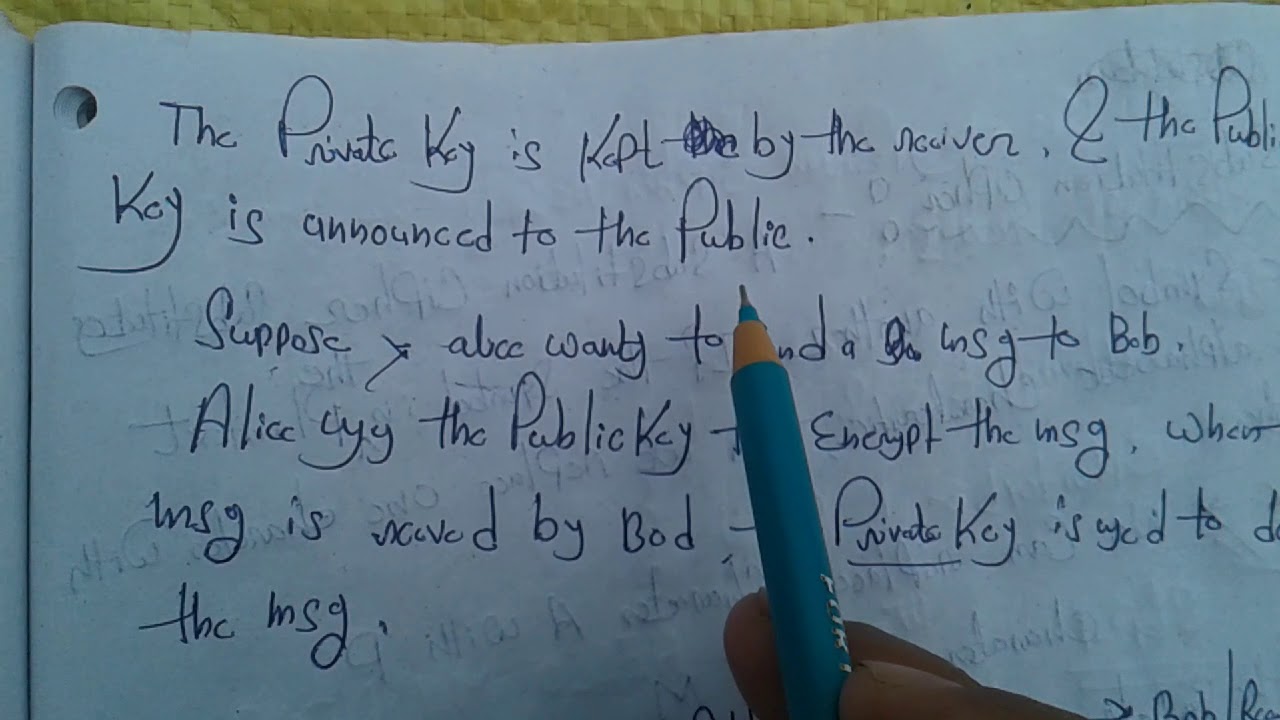 The Private Key is Kept by the reciver, & the Publi
Key is announced to the Public.
Suppose alice wants to a msg to Bob.
Alice uses the Public Key Encrypt the msg. When
msg is recved by Bod Private Key is used to d
the msg.
Bob/Rec